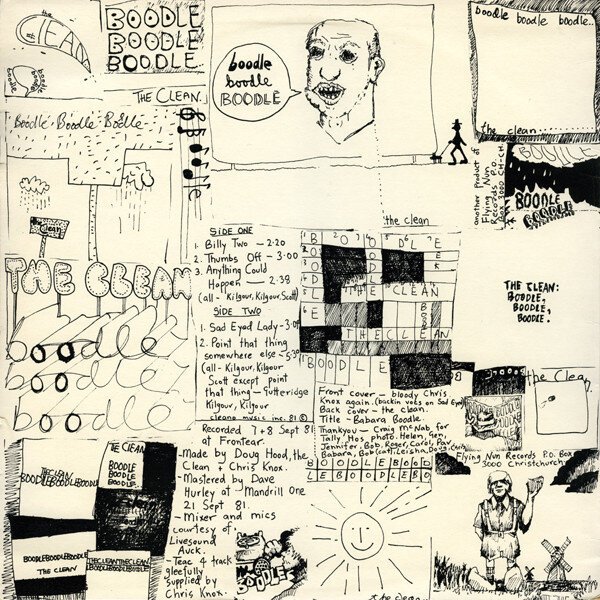 the
CLEAN
BOODLE
BOODLE
BOODLE
boodle
boodle
BOODLE
boodle boodle boodle..
the clean
THE CLEAN.
Boodle. Boodle. Boodle.
Boodle
the
clean
the clean
another product of
Flying Nun
Records P.O.
Box 3000 CH-CH.
BOODLE
BOODLE
THE CLEAN
boodle
boodle
boodle
SIDE ONE
1. Billy Two — 2·20
2. Thumbs Off — 3·00
3. Anything Could
Happen — 2·38
(all - Kilgour, Kilgour, Scott)
SIDE TWO
1. Sad Eyed Lady - 3·0
2. Point that thing
somewhere else - 5·3
(all - Kilgour, Kilgour
Scott except point
that thing - Gutteridge
Kilgour, Kilgour
cleano music inc. 81 ©
BOODLE
THE CLEAN
THE CLEAN
BOODLE
THE CLEAN:
BOODLE,
BOODLE,
BOODLE.
Front cover - bloody Chris
Knox again. (backin vots on Sad Eyed)
Back cover - the clean.
Title - Babara Boodle.
Thankyou - Craig McNab, for
Tally Ho's photo. Helen, Gen,
Jennifer. Bob, Roger, Carol, Pav
Babara, Bob (cat), Leisha, Doug
BOODLEBOOD
LEBOODLEBO
the Clean.
Flying Nun Records P.O. Box
3000 Christchurch
Recorded 7+8 Sept 81
at Frontear.
-Made by Doug Hood, the
Clean + Chris Knox.
-Mastered by Dave
Hurley at - Mandrill One
21 Sept 81.
-Mixer and mics
courtesy of
Livesound
Auck.
-Teac 4 track
gleefully
supplied by
Chris Knox.
THE CLEAN
BOODLEBOODLEBOODLE
THE CLEAN
BOODLE
BOODLE
BOODLE
BOODLEBOODLEBOODLE
THE CLEAN
THECLEANTHECLEAN
BOODLEBOODLEBOODLE
BOODLE
the clean